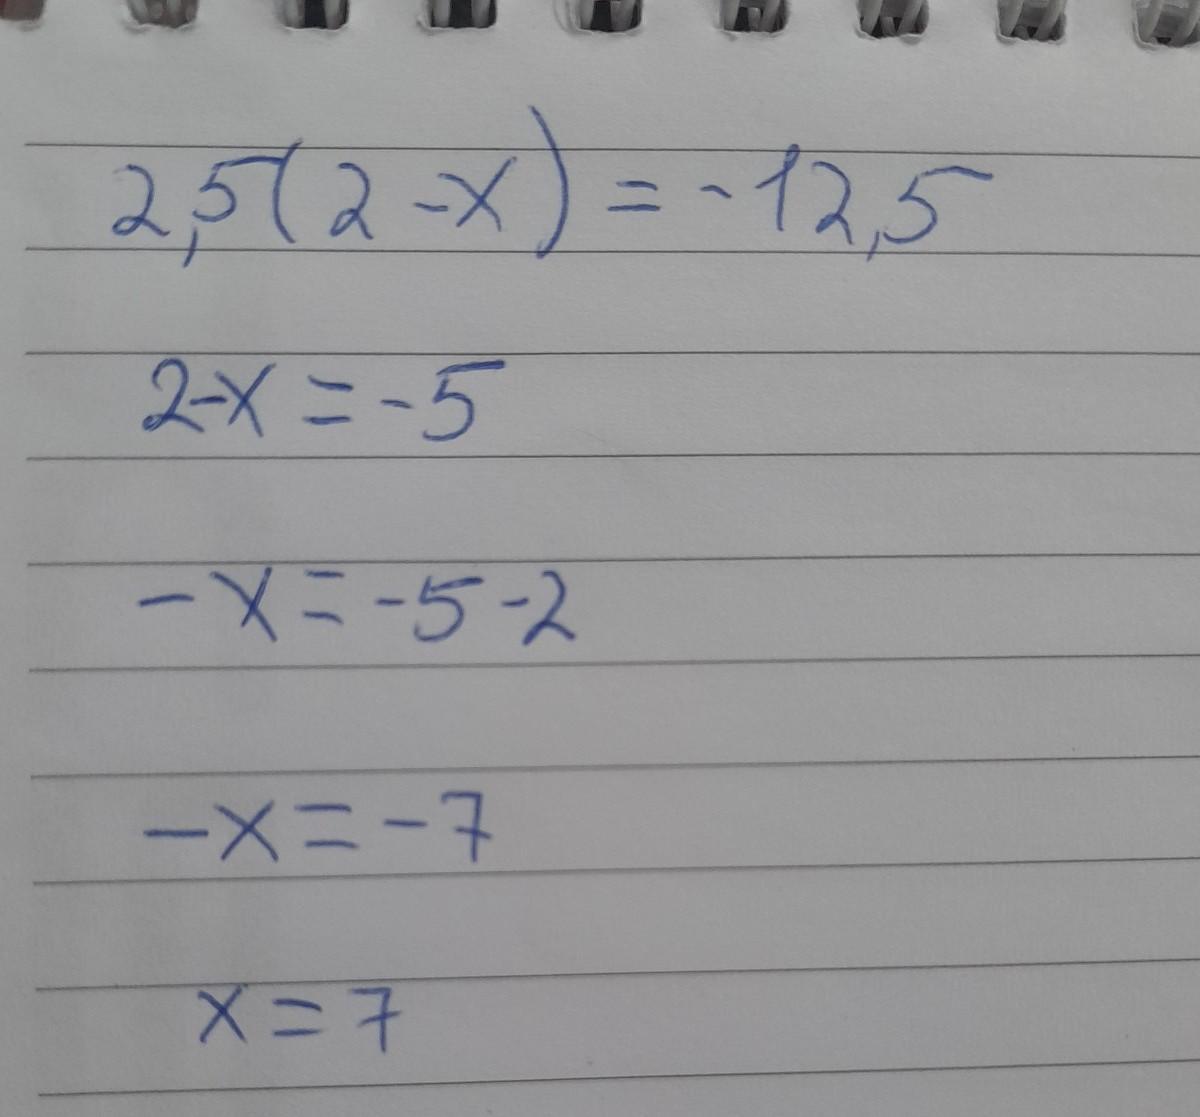 2,5(2-x) = -12,5
2-x = -5
-x = -5-2
-x = -7
x = 7